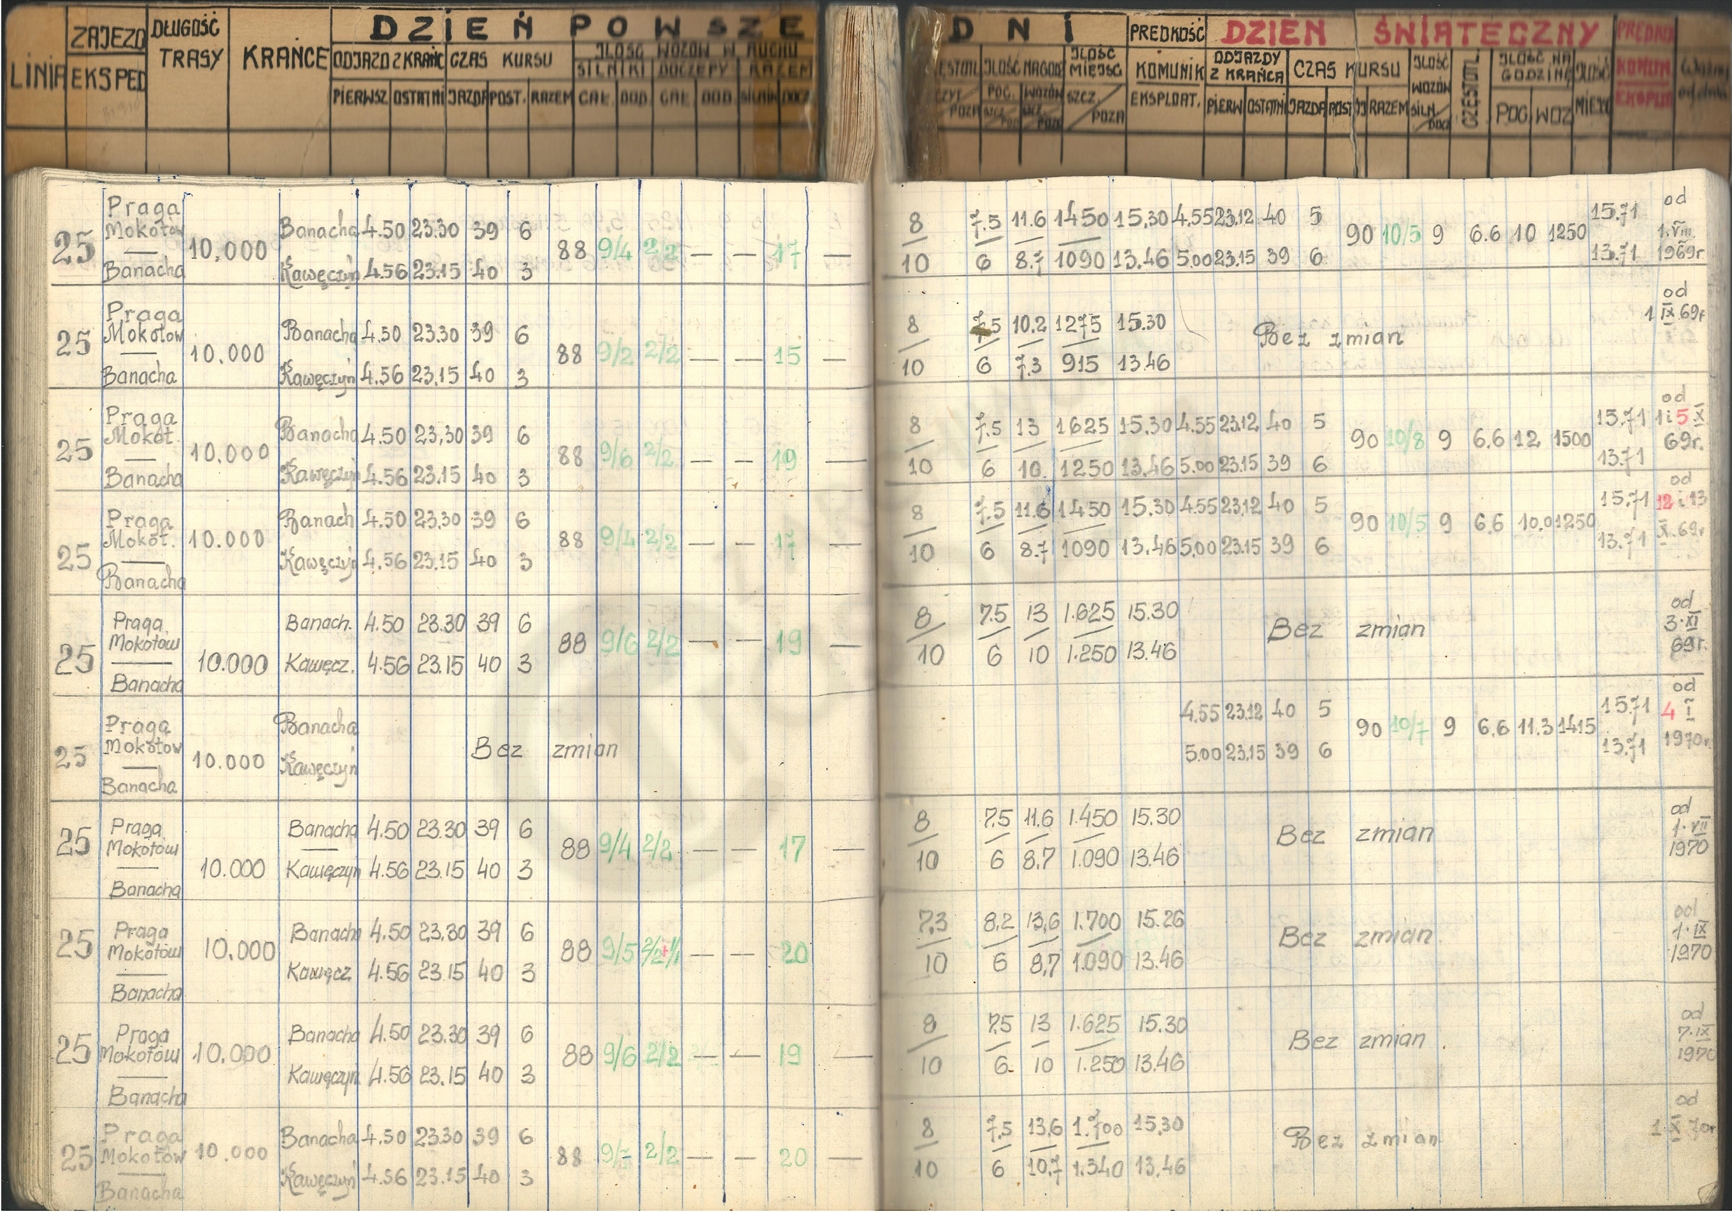 DZIEŃ POWSZEDNI
DZIEŃ ŚWIĄTECZNY
LINIA
ZAJEZD
EKSPED
DŁUGOŚĆ
TRASY
KRAŃCE
ODJAZD Z KRAŃC
CZAS KURSU
ILOŚĆ WOZÓW W RUCHU
SILNIKI DOCZEPY RAZEM
PIERWSZ OSTATNI JAZDA POST. RAZEM CAŁ. DOD. CAŁ. DOD. SILNIK DOCZ
ILOŚĆ NA GOD
ILOŚĆ MIEJSC
PRĘDKOŚĆ
KOMUNIK
EKSPLOAT.
POG. WOZÓW
SZCZ POZA
ODJAZDY Z KRAŃCA
CZAS KURSU
ILOŚĆ WOZÓW
CZĘSTOTL
ILOŚĆ NA GODZINĘ
ILOŚĆ MIEJSC
PRĘDKO
KOMUN
EKSPLO
PIERW OSTATNI JAZDA POST RAZEM SILN. DOCZ POG. WOZ
Praga 8 7.5 11.6 1450 15.30 4.55 23.12 40 5 15.71 od
25 Mokotów 10.000 Banacha 4.50 23.30 39 6 88 9/4 2/2 — — 17 — 90 10/5 9 6.6 10 1250 1.VIII
Banacha Kawęczyn 4.56 23.15 40 3 10 6 8.7 1090 13.46 5.00 23.15 39 6 13.71 1969r.
Praga 8 7.5 10.2 1275 15.30 od
25 Mokotow 10.000 Banacha 4.50 23.30 39 6 88 9/2 2/2 — — 15 — Bez zmian 1 IX 69r
Banacha Kawęczyn 4.56 23.15 40 3 10 6 7.3 915 13.46
Praga 8 7.5 13 1625 15.30 4.55 23.12 40 5 15.71 od
25 Mokot. 10.000 Banacha 4.50 23,30 39 6 88 9/6 2/2 — — 19 — 90 10/8 9 6.6 12 1500 1 i 5 X
Banacha Kawęczyn 4.56 23.15 40 3 10 6 10. 1250 13.46 5.00 23.15 39 6 13.71 69r.
Praga 8 7.5 11.6 1450 15.30 4.55 23.12 40 5 15.71 od
25 Mokot. 10.000 Banach 4.50 23.30 39 6 88 9/4 2/2 — — 17 — 90 10/5 9 6.6 10,0 1250 12 i 13
Banacha Kawęczyn 4.56 23.15 40 3 10 6 8.7 1090 13.46 5,00 23.15 39 6 13.71 X.69r
Praga 8 7.5 13 1.625 15.30 od
25 Mokotów 10.000 Banach. 4.50 23.30 39 6 88 9/6 2/2 — — 19 — Bez zmian 3.XI
Banacha Kawęcz. 4.56 23.15 40 3 10 6 10 1.250 13.46 69r.
Praga Banacha 4.55 23.12 40 5 15.71 od
25 Mokotow 10.000 Bez zmian 90 10/7 9 6.6 11.3 1415 4 I
Banacha Kawęczyn 5.00 23.15 39 6 13.71 1970r.
Praga 8 7.5 11.6 1.450 15.30 od
25 Mokotów 10.000 Banacha 4.50 23.30 39 6 88 9/4 2/2 — — 17 — Bez zmian 1.VII
Banacha Kawęczyn 4.56 23.15 40 3 10 6 8,7 1.090 13.46 1970
Praga 7,3 8,2 13,6 1.700 15.26 od
25 Mokotów 10,000 Banach 4.50 23.30 39 6 88 9/5 2/2+1/1 — — 20 — Bez zmian 1.IX
Banacha Kawęcz 4.56 23.15 40 3 10 6 8,7 1.090 13.46 1970
Praga 8 7.5 13 1.625 15.30 od
25 Mokotów 10.000 Banacha 4.50 23.30 39 6 88 9/6 2/2 — — 19 — Bez zmian. 7.IX
Banacha Kawęczyn 4.56 23.15 40 3 10 6 10 1.250 13.46 1970
Praga 8 7.5 13,6 1.700 15,30 od
25 Mokotów 10.000 Banacha 4.50 23.30 39 6 88 9/7 2/2 — — 20 — Bez zmian 1 X 70r
Banacha Kawęczyn 4.56 23.15 40 3 10 6 10,7 1.340 13,46